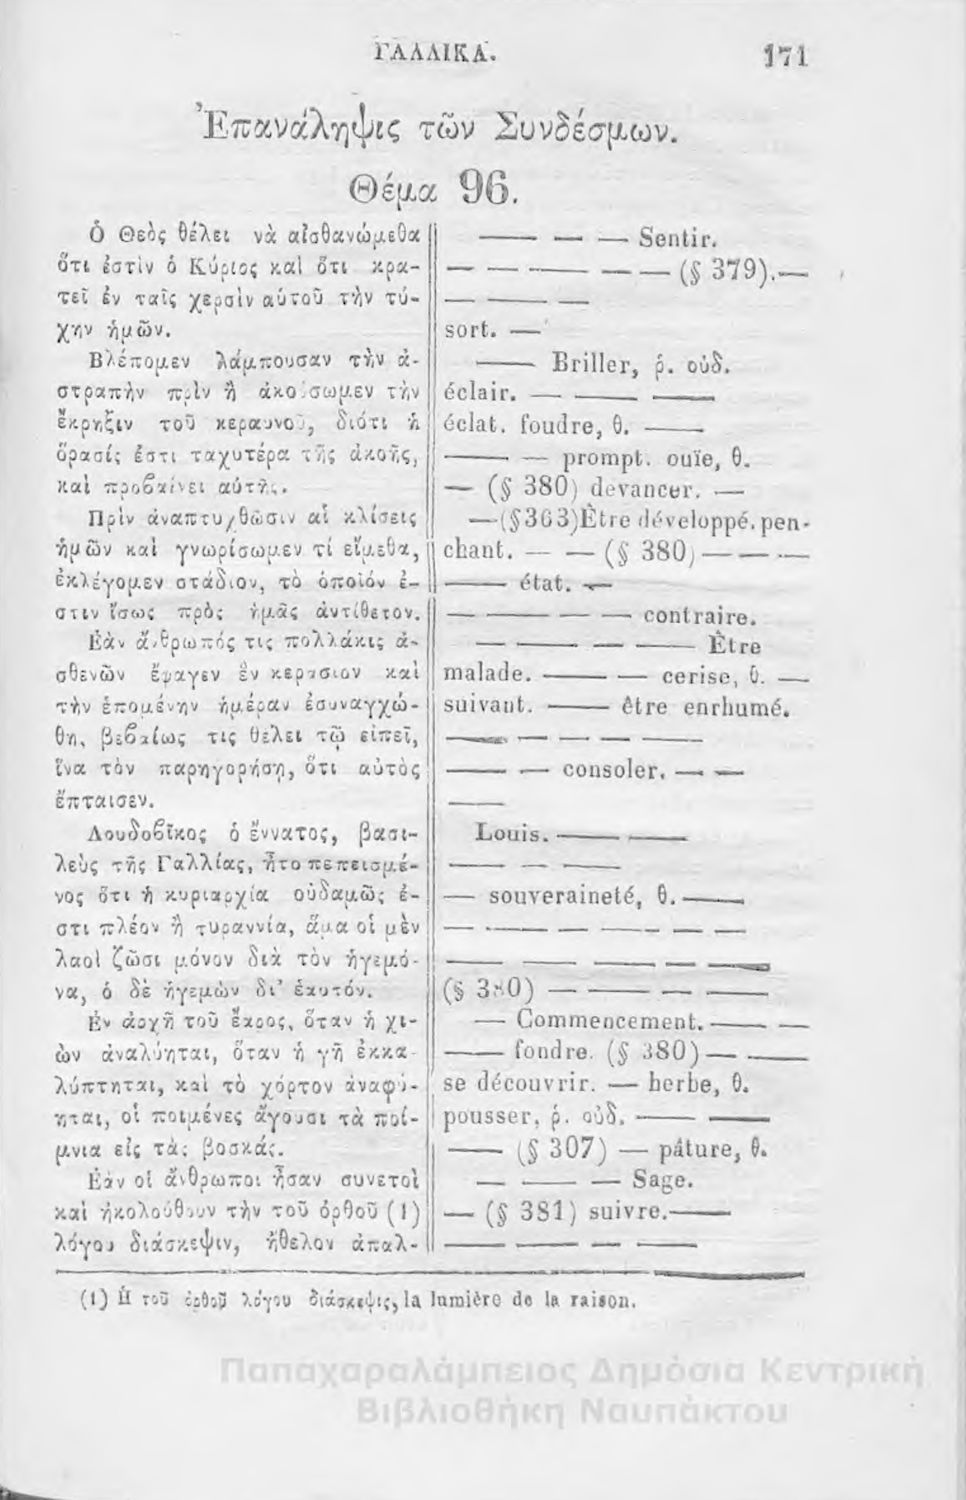 ΓΑΛΛΙΚΑ. 171
Ἐπανάληψις τῶν Συνδέσμων.
Θέμα 96.
Ὁ Θεὸς θέλει νὰ αἰσθανώμεθα
ὅτι ἐστὶν ὁ Κύριος καὶ ὅτι κρα-
τεῖ ἐν ταῖς χερσὶν αὐτοῦ τὴν τύ-
χην ἡμῶν.
Βλέπομεν λάμπουσαν τὴν ἀ-
στραπὴν πρὶν ἢ ἀκούσωμεν τὴν
ἔκρηξιν τοῦ κεραυνοῦ, διότι ἡ
ὅρασίς ἐστι ταχυτέρα τῆς ἀκοῆς,
καὶ προβαίνει αὐτῆς.
Πρὶν ἀναπτυχθῶσιν αἱ κλίσεις
ἡμῶν καὶ γνωρίσωμεν τί εἴμεθα,
ἐκλέγομεν στάδιον, τὸ ὁποῖόν ἐ-
στιν ἴσως πρὸς ἡμᾶς ἀντίθετον.
Ἐὰν ἄνθρωπός τις πολλάκις ἀ-
σθενῶν ἔφαγεν ἓν κεράσιον καὶ
τὴν ἑπομένην ἡμέραν ἐσυναγχώ-
θη, βεβαίως τις θέλει τῷ εἰπεῖ,
ἵνα τὸν παρηγορήσῃ, ὅτι αὐτὸς
ἔπταισεν.
Λουδοβῖκος ὁ ἔννατος, βασι-
λεὺς τῆς Γαλλίας, ἦτο πεπεισμέ-
νος ὅτι ἡ κυριαρχία οὐδαμῶς ἐ-
στι πλέον ἢ τυραννία, ἅμα οἱ μὲν
λαοὶ ζῶσι μόνον διὰ τὸν ἡγεμό-
να, ὁ δὲ ἡγεμὼν δι' ἑαυτόν.
Ἐν ἀρχῇ τοῦ ἔαρος, ὅταν ἡ χι-
ὼν ἀναλύηται, ὅταν ἡ γῆ ἐκκα-
λύπτηται, καὶ τὸ χόρτον ἀναφύ-
ηται, οἱ ποιμένες ἄγουσι τὰ ποί-
μνια εἰς τὰς βοσκάς.
Ἐὰν οἱ ἄνθρωποι ἦσαν συνετοὶ
καὶ ἠκολούθουν τὴν τοῦ ὀρθοῦ (1)
λόγου διάσκεψιν, ἤθελον ἀπαλ-
——— — — Sentir.
— — ——— — — (§ 379).—
— ——— —
sort. —
——— Briller, ῥ. οὐδ.
éclair. — ——— ———
éclat. foudre, θ. ———
——— — prompt. ouïe, θ.
— (§ 380) devancer. —
—(§363)Être développé. pen-
chant. — — (§ 380) — — —
——— état. —
— ——— ——— — contraire.
— ——— — ——— Être
malade. ——— — cerise, θ. —
suivant. ——— être enrhumé.
——— — — — ———
——— — consoler. — —
———
Louis. ——— ———
——— — ———
— souveraineté, θ. ———
— ——— — — — —
——— — — — ———
(§ 380) — ——— — ———
— Commencement. ——— —
——— fondre. (§ 380) — ———
se découvrir. — herbe, θ.
pousser, ῥ. οὐδ. ——— ———
——— (§ 307) — pâture, θ.
— ——— — Sage.
— (§ 381) suivre. ———
——— ——— — ———
(1) Ἡ τοῦ ὀρθοῦ λόγου διάσκεψις, la lumière de la raison.
Παπαχαραλάμπειος Δημόσια Κεντρική
Βιβλιοθήκη Ναυπάκτου